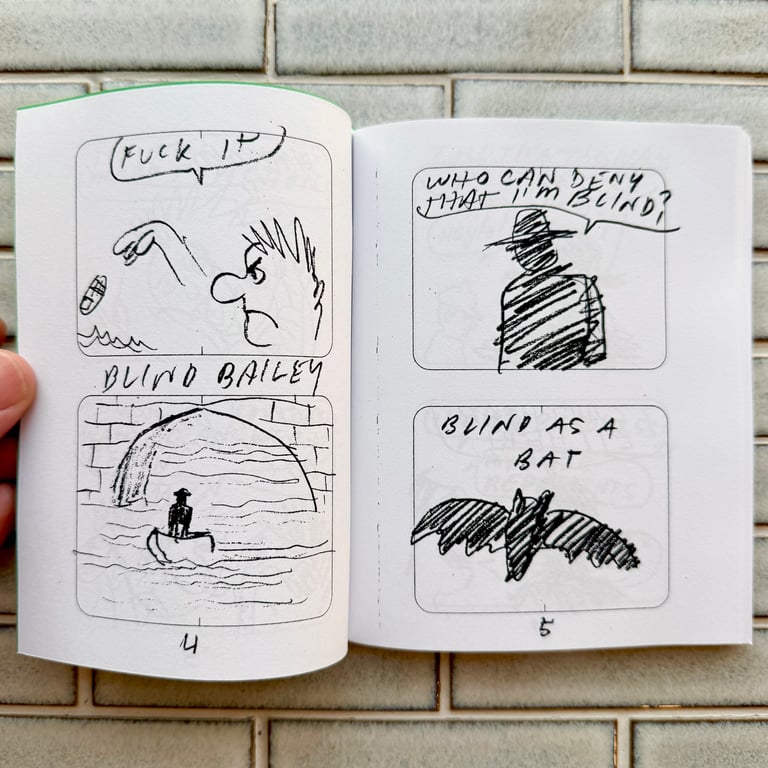 FUCK IT
BLIND BAILEY
4
WHO CAN DENY
THAT I'M BLIND?
BLIND AS A
BAT
5